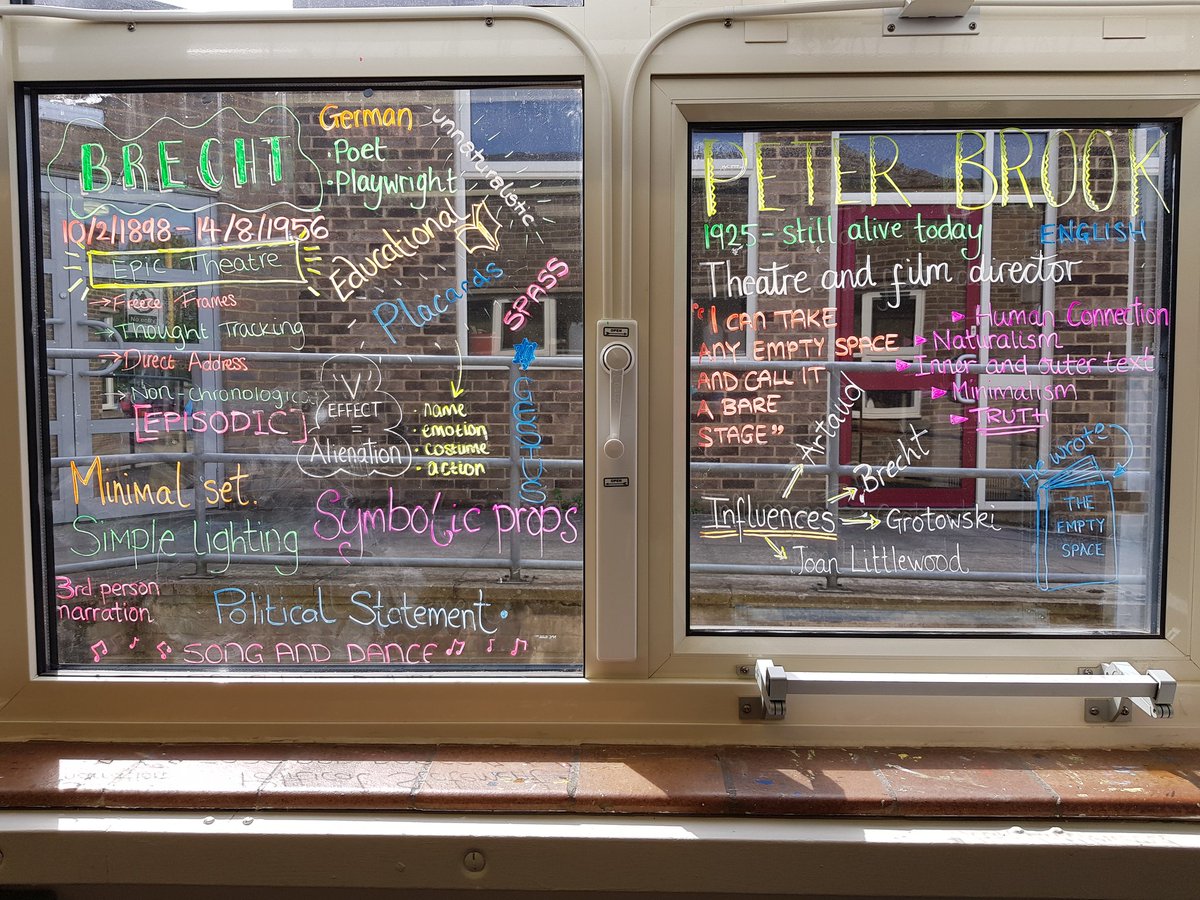 BRECHT
10/2/1898 - 14/8/1956
EPIC Theatre
→ Freeze Frames
→ Thought Tracking
→ Direct Address
→ Non-chronological
[EPISODIC]
German
• Poet
• Playwright
unnaturalistic
Educational
Placards
• name
• emotion
• costume
• action
SPASS
GESTUS
'V'
EFFECT
=
Alienation
Minimal set.
Simple lighting
Symbolic props
3rd person
narration
Political Statement.
SONG AND DANCE
PETER BROOK
1925 - still alive today
ENGLISH
Theatre and film director
"I CAN TAKE
ANY EMPTY SPACE
AND CALL IT
A BARE
STAGE"
Human Connection
Naturalism
Inner and outer text
Minimalism
TRUTH
Influences
Artaud
Brecht
Grotowski
Joan Littlewood
He wrote
THE
EMPTY
SPACE
OPEN
OPEN